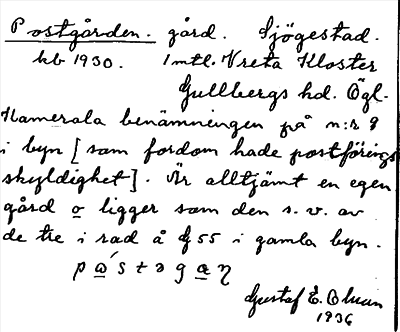 Postgården. gård. Sjögestad.
kb 1930. Intl. Vreta Kloster
Gullbergs hd. Ögl.
Kamerala benämningen på n:r 9
i byn [som fordom hade postförings
skyldighet]. Är alltjämt en egen
gård o ligger som den s. v. av
de tre i rad å G 55 i gamla byn.
Gustaf E.
1936